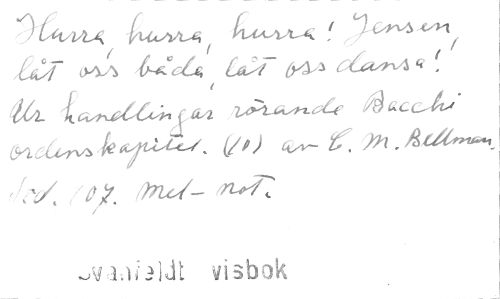 Hurra, hurra, hurra! Jensen,
låt oss båda, låt oss dansa!
Ur handlingar rörande Bacchi
ordenskapitel. (10) av C. M. Bellman.
107. Mel-not.
visbok